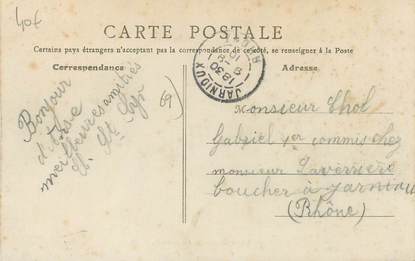 40€
CARTE POSTALE
Certains pays étrangers n'acceptant pas la correspondance de ce côté, se renseigner à la Poste
Correspondance
Adresse.
JARNIOUX
RHONE
18 30
Bonjour
d'Anse
meilleures amitiés
69
Monsieur Thol
Gabriel 1er commis chez
monsieur Laverriere
boucher à Jarnioux
(Rhône)